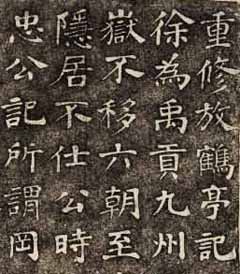 重修放鶴亭記
徐為禹貢九州
嶽不移六朝至
隱居不仕公時
忠公記所謂岡